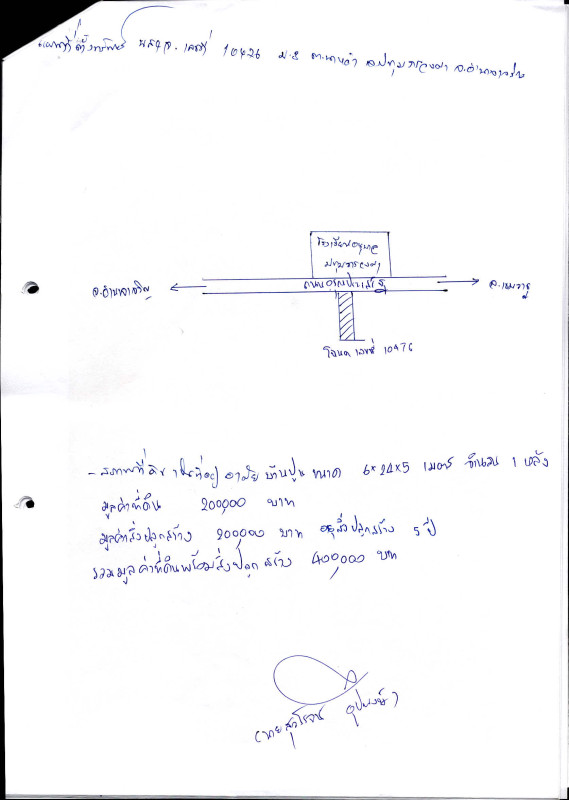 แผนที่ตั้งทรัพย์ นส4จ. เลขที่ 10426 ม.8 ต.นาหว้า อ.ปทุมราชวงศา จ.อำนาจเจริญ
โรงเรียนอนุบาล
ปทุมราชวงศา
ถนนอรุณประเสริฐ
จ.อำนาจเจริญ
อ.เขมราฐ
โฉนด เลขที่ 10476
- สภาพที่ดิน เป็นที่อยู่ อาศัย บ้านปูน ขนาด 6×24×5 เมตร จำนวน 1 หลัง
มูลค่าที่ดิน 200,000 บาท
มูลค่าสิ่งปลูกสร้าง 200,000 บาท อายุสิ่งปลูกสร้าง 5 ปี
รวมมูลค่าที่ดินพร้อมสิ่งปลูกสร้าง 400,000 บาท